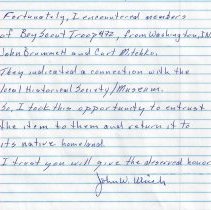 Fortunately, I encountered members
of Boy Scout Troop #72, from Washington, IN
John Drummett and Curt M.
They indicated a connection with the
local Historical Society/Museum.
So, I took this opportunity to entrust
the item to them and return it to
its native homeland.
I trust you will give the deserved honor
John W.